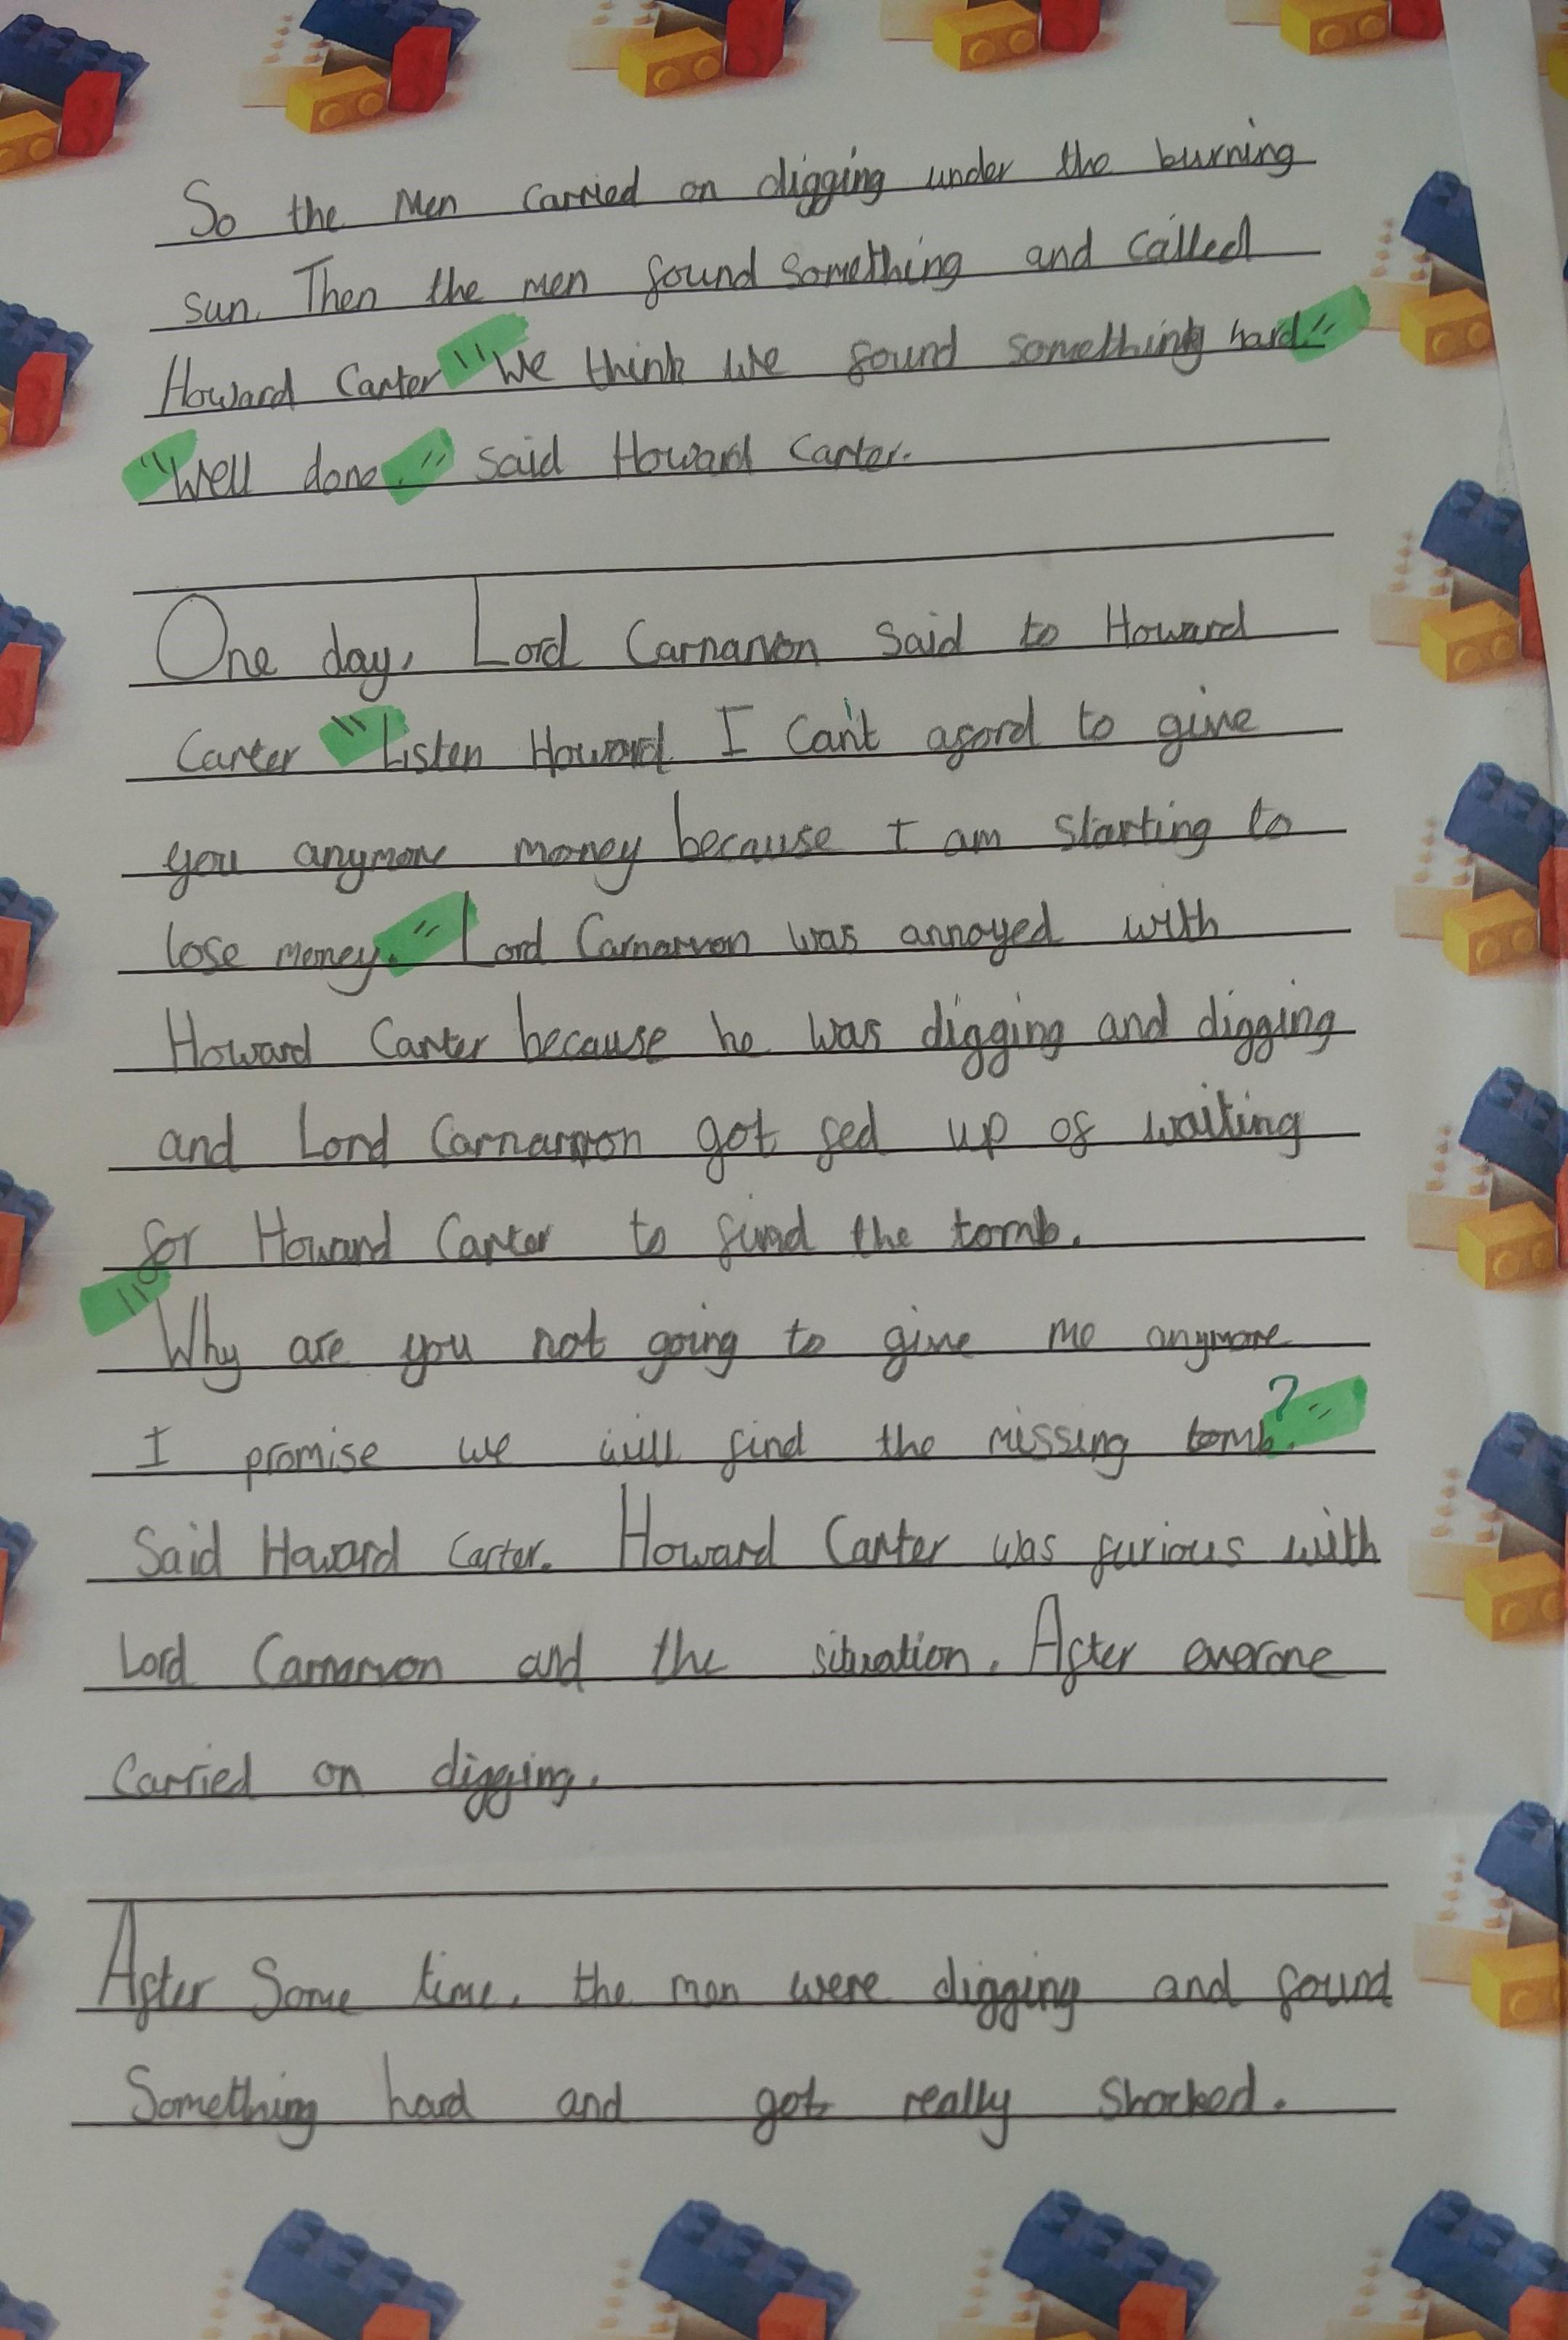 So the men carried on digging under the burning
sun. Then the men found something and called
Howard Carter "We think we found something hard."
"Well done." said Howard Carter.
One day, Lord Carnarvon said to Howard
Carter "Listen Howard I can't aford to give
you anymore money because I am starting to
lose money." Lord Carnarvon was annoyed with
Howard Carter because he was digging and digging
and Lord Carnarvon got fed up of waiting
for Howard Carter to find the tomb.
"Why are you not going to give me anymore
I promise we will find the missing tomb.?"
Said Howard Carter. Howard Carter was furious with
Lord Carnarvon and the situation. After everone
carried on digging.
After some time, the men were digging and found
Something hard and got really shocked.